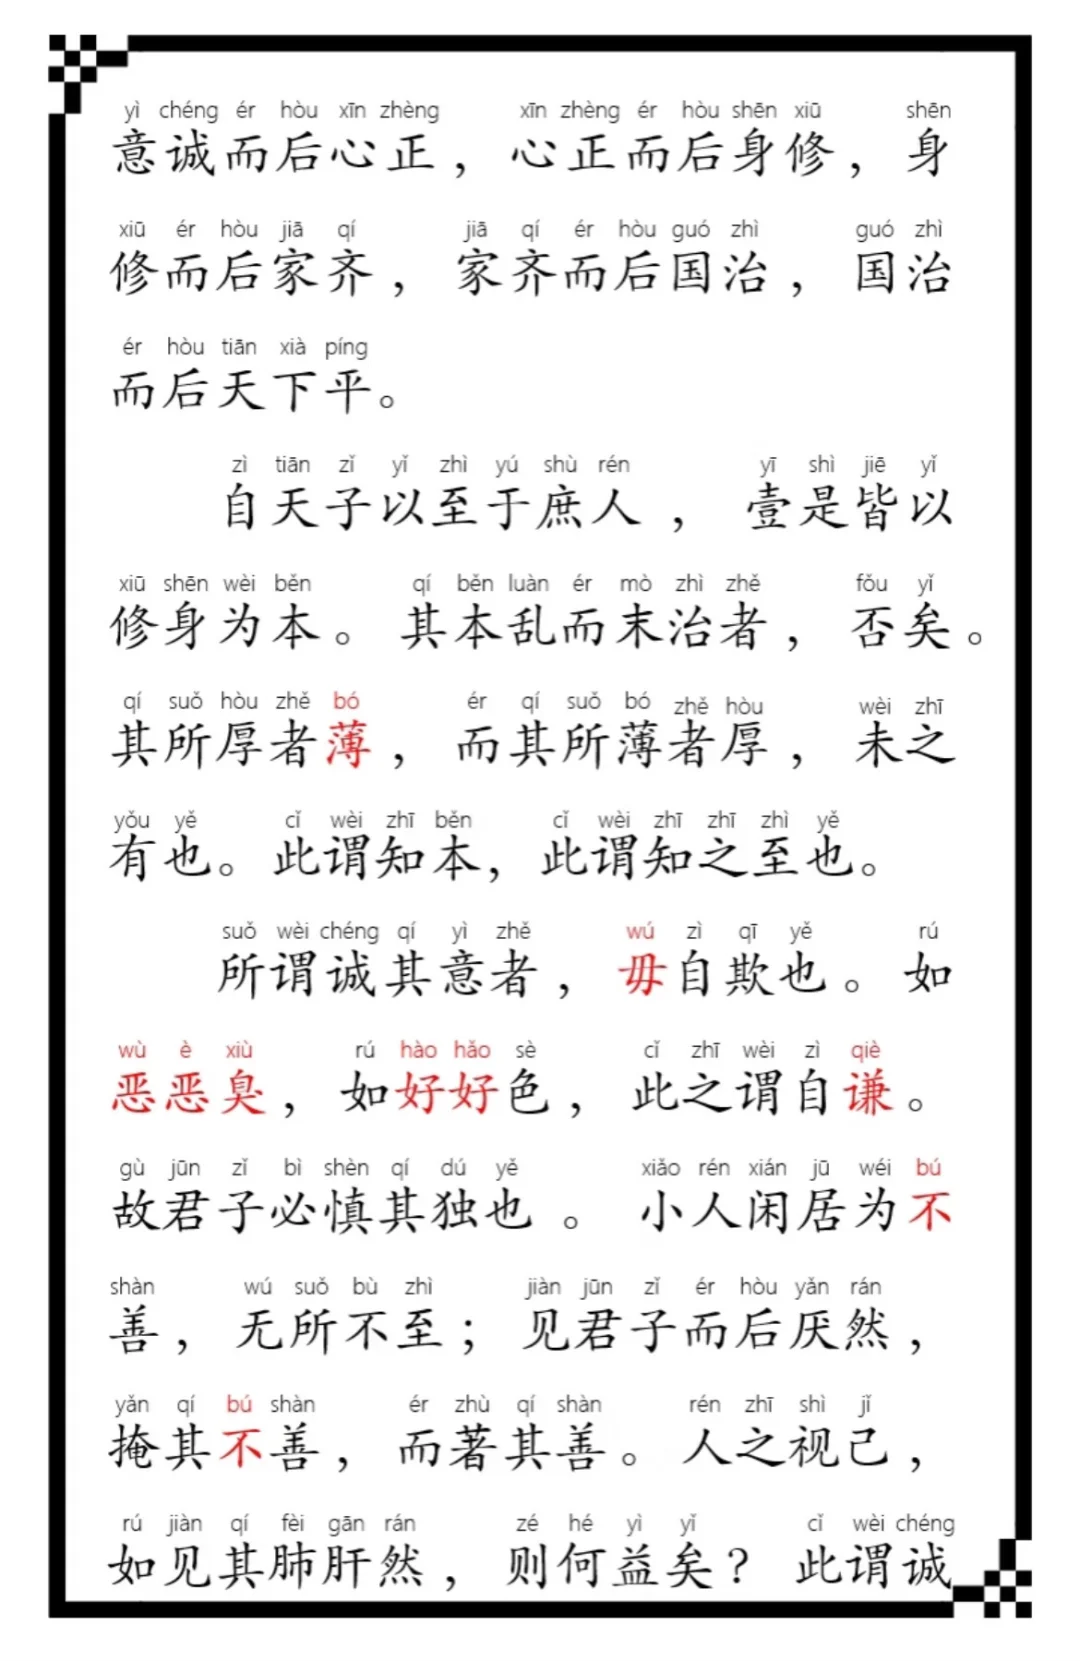 yì chéng ér hòu xīn zhèng xīn zhèng ér hòu shēn xiū shēn
意诚而后心正，心正而后身修，身
xiū ér hòu jiā qí jiā qí ér hòu guó zhì guó zhì
修而后家齐，家齐而后国治，国治
ér hòu tiān xià píng
而后天下平。
zì tiān zǐ yǐ zhì yú shù rén yī shì jiē yǐ
自天子以至于庶人，壹是皆以
xiū shēn wèi běn qí běn luàn ér mò zhì zhě fǒu yǐ
修身为本。其本乱而末治者，否矣。
qí suǒ hòu zhě bó ér qí suǒ bó zhě hòu wèi zhī
其所厚者薄，而其所薄者厚，未之
yǒu yě cǐ wèi zhī běn cǐ wèi zhī zhī zhì yě
有也。此谓知本，此谓知之至也。
suǒ wèi chéng qí yì zhě wú zì qī yě rú
所谓诚其意者，毋自欺也。如
wù è xiù rú hào hǎo sè cǐ zhī wèi zì qiè
恶恶臭，如好好色，此之谓自谦。
gù jūn zǐ bì shèn qí dú yě xiǎo rén xián jū wéi bú
故君子必慎其独也。小人闲居为不
shàn wú suǒ bù zhì jiàn jūn zǐ ér hòu yǎn rán
善，无所不至；见君子而后厌然，
yǎn qí bú shàn ér zhù qí shàn rén zhī shì jǐ
掩其不善，而著其善。人之视己，
rú jiàn qí fèi gān rán zé hé yì yǐ cǐ wèi chéng
如见其肺肝然，则何益矣？此谓诚